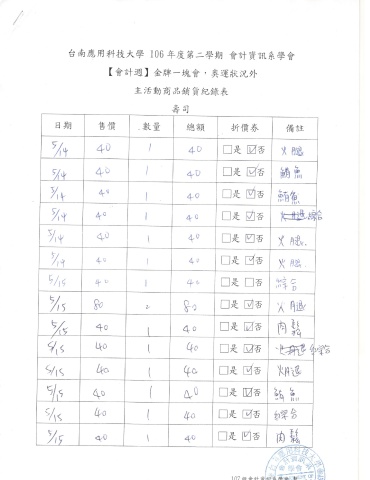 台南應用科技大學 106 年度第二學期 會計資訊系學會
【會計週】金牌一塊會，奧運狀況外
主活動商品銷貨紀錄表
壽司
日期 售價 數量 總額 折價券 備註
5/14 40 1 40 □是 ☑否 火腿
5/14 40 1 40 □是 ☑否 鮪魚
5/14 40 1 40 □是 ☑否 鮪魚
5/14 40 1 40 □是 ☑否 綜合
5/14 40 1 40 □是 ☑否 火腿
5/14 40 1 40 □是 ☑否 火腿
5/15 40 1 40 □是 □否 綜合
5/15 80 2 80 □是 ☑否 火腿
5/15 40 1 40 □是 ☑否 肉鬆
5/15 40 1 40 □是 ☑否 綜合
5/15 40 1 40 □是 ☑否 火腿
5/15 40 1 40 □是 ☑否 鮪魚
5/15 40 1 40 □是 ☑否 綜合
5/15 40 1 40 □是 ☑否 肉鬆